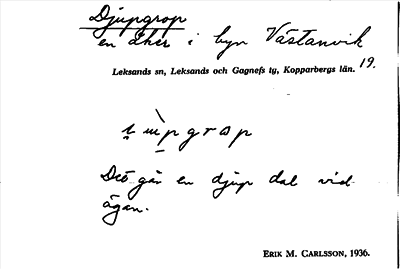 Djupgrop
en åker i byn Västanvik
19.
Leksands sn, Leksands och Gagnefs tg, Kopparbergs län.
Det går en djup dal vid
ägan.
ERIK M. CARLSSON, 1936.